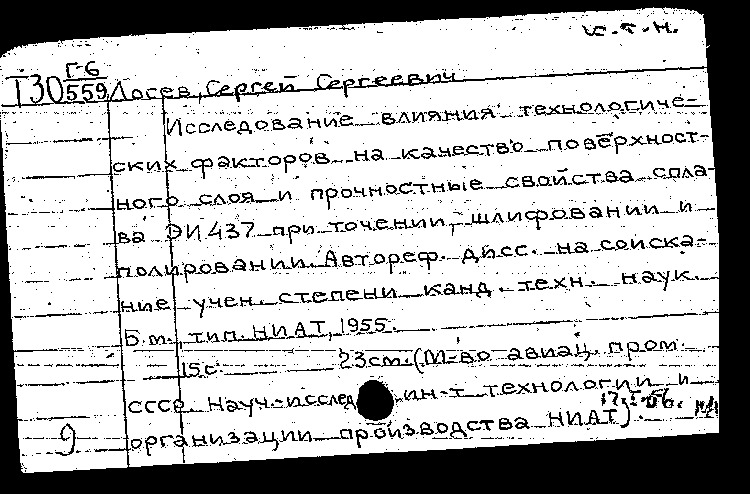 к.т.н.
Г-6
Т30 559 Лосев, Сергей Сергеевич
Исследование влияния технологиче-
ских факторов на качество поверхност-
ного слоя и прочностные свойства спла-
ва ЭИ 437 при точении, шлифовании и
полировании. Автореф. дисс. на соиска-
ние учен. степени канд. техн. наук.
Б.м., тип. НИАТ, 1955.
15с. 23см. (М-во авиац. пром.
СССР. Науч.-исслед. ин-т технологии и
9 организации производства НИАТ).